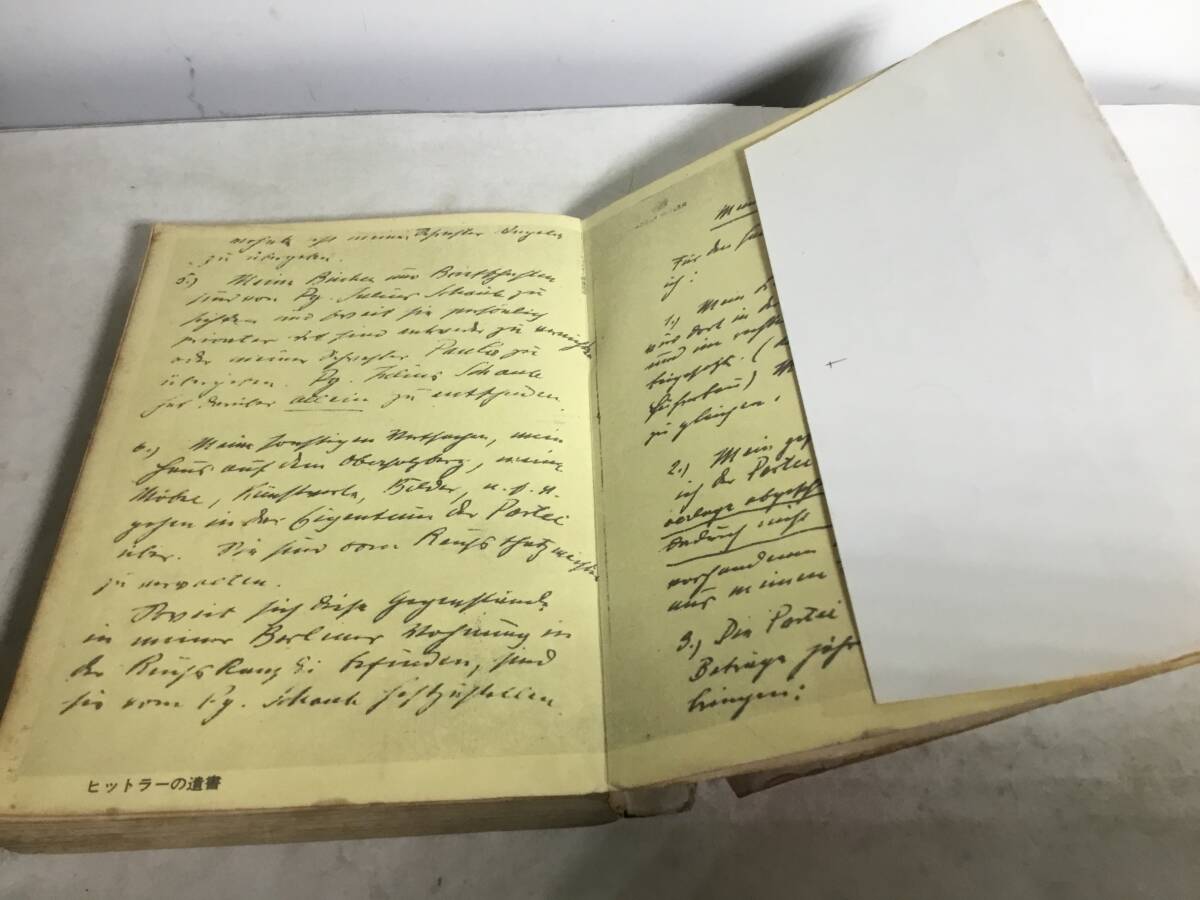 meiner Schwester Angela
zu übergeben.
5.) Meine Bücher und Briefschaften
sind von Pg. Julius Schaub zu
sichten und soweit sie persönlich
privater Art sind entweder zu vernichten
oder meiner Schwester Paula zu
übergeben. Pg. Julius Schaub
hat darüber allein zu entscheiden.
6.) Meine sonstigen Wertsachen, mein
Haus auf dem Obersalzberg, meine
Möbel, Kunstwerke, Bilder, u.s.w.
gehen in das Eigentum der Partei
über. Sie sind vom Reichsschatzmeister
zu verwalten.
Soweit sich diese Gegenstände
in meiner Berliner Wohnung in
der Reichskanzlei befinden, sind
sie vom Pg. Schaub festzustellen.
ヒットラーの遺書
Mein
Für den
ich:
1.) Mein
und dort in
und im
beigesetzt.
zu gleichen.
2.) Mein
ich der Partei
verlage
dadurch nicht
vorhandenen
aus meinen
3.) Die Partei
Beträge
bringen: